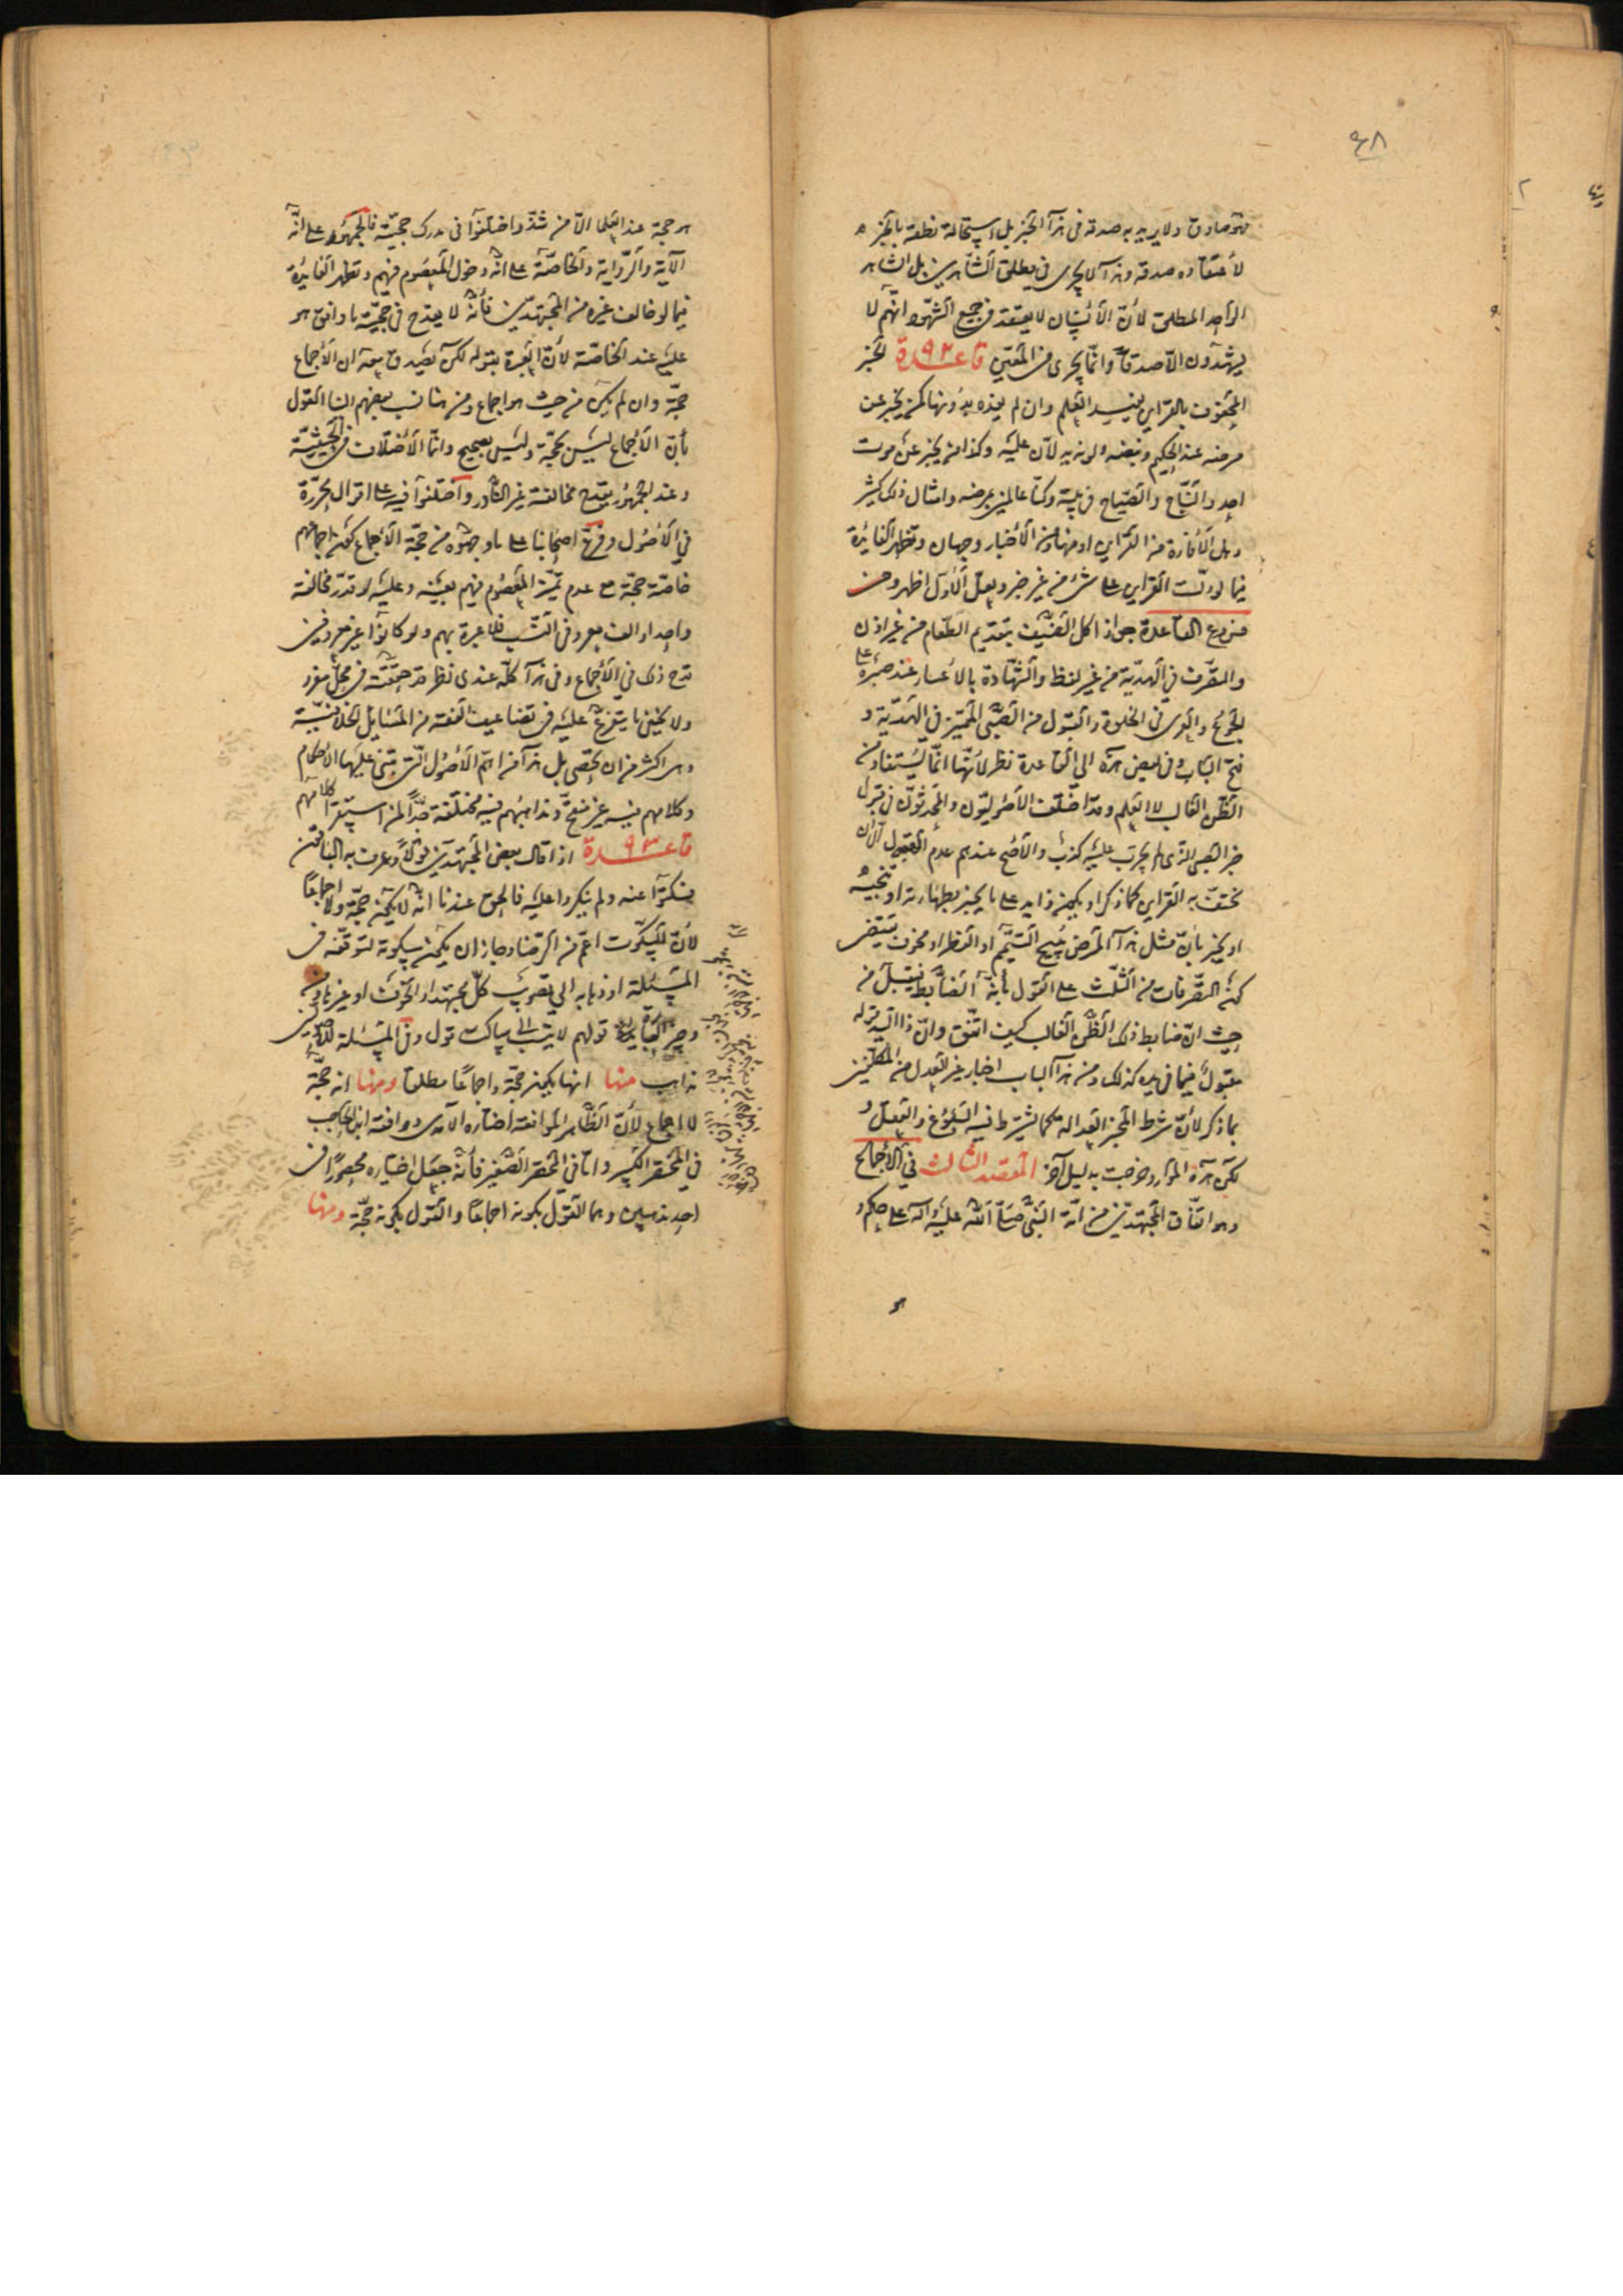 ٤٨
فهو صادق ولا يريد به صدقه في هذا الخبر بل استحالة نطقه بالخبر
لاعتقاده صدقه وهذا لا يجري في مطلق الشاهدين بل الشاهد
الواحد المطلق لأن الانسان لا يعتقد في جميع الشهود انهم لا
يشهدون الا صدقا وانما يجري في المعين قاعدة ٩٢ الخبر
المحفوف بالقراين يفيد العلم وان لم يفده بدونها كمن يخبر عن
مرضه عند الحكيم ونبضه ولونه يدلان عليه وكذا من يخبر عن موت
احد والنياح والصياح في بيته وكنا عالمين بمرضه وامثال ذلك كثير
وهل الافادة من القراين او منها ومن الأخبار وجهان وتظهر الفائدة
فيما لو دلت القراين على شئ من غير خبر ولعل الأول اظهر ومن
فروع القاعدة جواز اكل الضيف بتقديم الطعام من غير اذن
والتصرف في الهدية من غير لفظ والشهادة بالاعسار عند صبره على
الجوع والعرى في الخلوة والقبول من الصبي المميز في الهدية و
فتح الباب وفي بعض هذه الى القاعدة نظر لأنها انما يستفاد منه
الظن الغالب لا العلم وقد اختلف الأصوليون والمحدثون في قبول
خبر الصبي الذي لم يجرب عليه كذب والأصح عندهم عدم القبول الا ان
تحتف به القراين كما ذكر او يكون ذا يد على ما يخبر بطهارته او تنجيسه
او يخبر بأن مثل هذا المرض يبيح التيمم او الفطر او مخوف يقتضي
كون التصرفات من الثلث على القول بأنه الضابط فيقبل من
حيث ان ضابط ذلك الظن الغالب كيف اتفق وان ذا اليد قوله
مقبول فيما في يده كذلك ومن هذا الباب اخبار غير العدل من المكلفين
بما ذكر لأن شرط المخبر العدالة كما يشترط فيه البلوغ والعقل و
لكن هذه الموارد خرجت بدليل آخر المقصد الثالث في الأجماع
وهو اتفاق المجتهدين من امة النبي صلى الله عليه وآله على حكم و
هو
هو حجة عند العلما الا من شذ واختلفوا في مدرك حجيته فالجمهور على انه
الآية والرواية والخاصة على انه دخول المعصوم فيهم وتظهر الفايدة
فيما لو خالف غيره من المجتهدين فأنه لا يقدح في حجية ما وافق هو
عليه عند الخاصة لأن العبرة بقوله لكن يصدق معه ان الأجماع
حجة وان لم يكن من حيث هو اجماع ومن هنا نسب بعضهم الينا القول
بأن الأجماع ليس بحجة وليس بصحيح وانما الأختلاف في الحيثية
وعند الجمهور يقدح مخالفة غير النادر واختلفوا فيه على اقوال محررة
في الأصول وفرع اصحابنا على ما وجهوه من حجة الأجماع كون اجماعهم
خاصة حجة مع عدم تميز المعصوم فيهم بعينه وعليه لو قدر مخالفة
واحد او الف معروفي النسب فلا عبرة بهم ولو كانوا غير معروفين
قدح ذلك في الأجماع وفي هذا كله عندي نظر قد حققته في محل مفرد
ولا يخفى ما يتفرع عليه في تضاعيف الفقه من المسايل الخلافية
وهي اكثر من ان تحصى بل هذا من اهم الأصول التي تبتني عليها الأحكام
وكلامهم فيه غير منقح ومذاهبهم فيه مختلفة جدا لمن استقرا كلامهم
قاعدة ٩٣ اذا قال بعض المجتهدين قولا وعرف به الباقون
فسكتوا عنه ولم ينكروا عليه فالحق عندنا انه لا يكون حجة ولا اجماعا
لأن السكوت اعم من الرضا وجاز ان يكون سكوته لتوقفه في
المسئلة او ذهابه الى تصويب كل مجتهد او لخوف او غير ذلك
قولهم لا ينسب الى ساكت قول وفي المسئلة للأصوليين
مذاهب منها انها يكون حجة واجماعا مطلقا ومنها انه حجة
لا اجماع لأن الظاهر الموافقة اختاره الآمدي ووافقه ابن الحاجب
في المختصر الكبير واما في المختصر الصغير فأنه جعل اختياره محصورا في
احد مذهبين وهما القول بكونه اجماعا والقول بكونه حجة ومنها